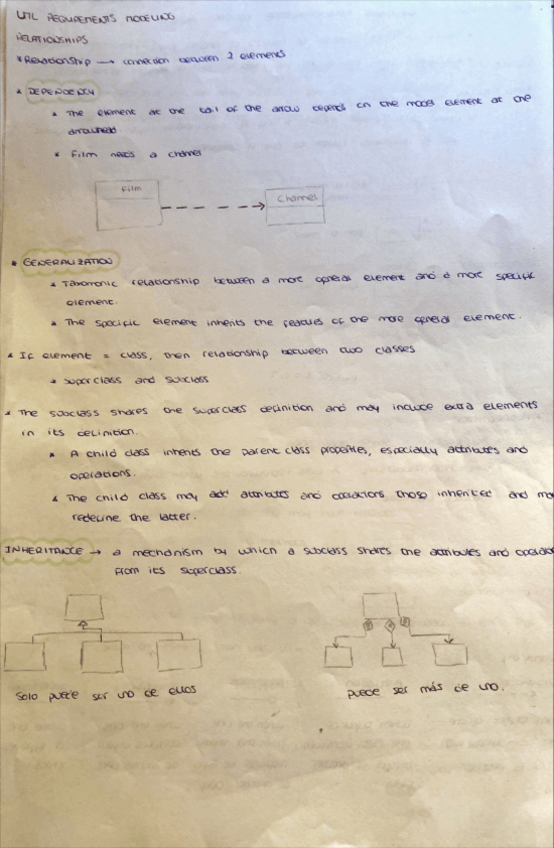 UML REQUIREMENTS MODELING
RELATIONSHIPS
* Relationship → connection between 2 elements
* DEPENDENCY
* The element at the tail of the arrow depends on the model element at the
arrowhead
* Film needs a channel
Film
Channel
* GENERALIZATION
* Taxonomic relationship between a more general element and a more specific
element.
* The specific element inherits the features of the more general element.
* If element = class, then relationship between two classes
* superclass and subclass
* The subclass shares the superclass definition and may include extra elements
in its definition.
* A child class inherits the parent class properties, especially attributes and
operations.
* The child class may add attributes and operations those inherited and may
redefine the latter.
INHERITANCE → a mechanism by which a subclass shares the attributes and
from its superclass.
Solo puede ser uno de ellos
puede ser más de uno.